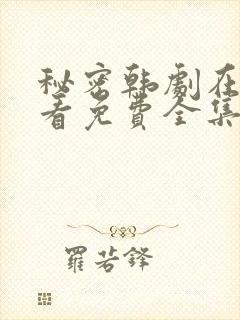 秘密韩剧在
看免费全集
羅若鋒